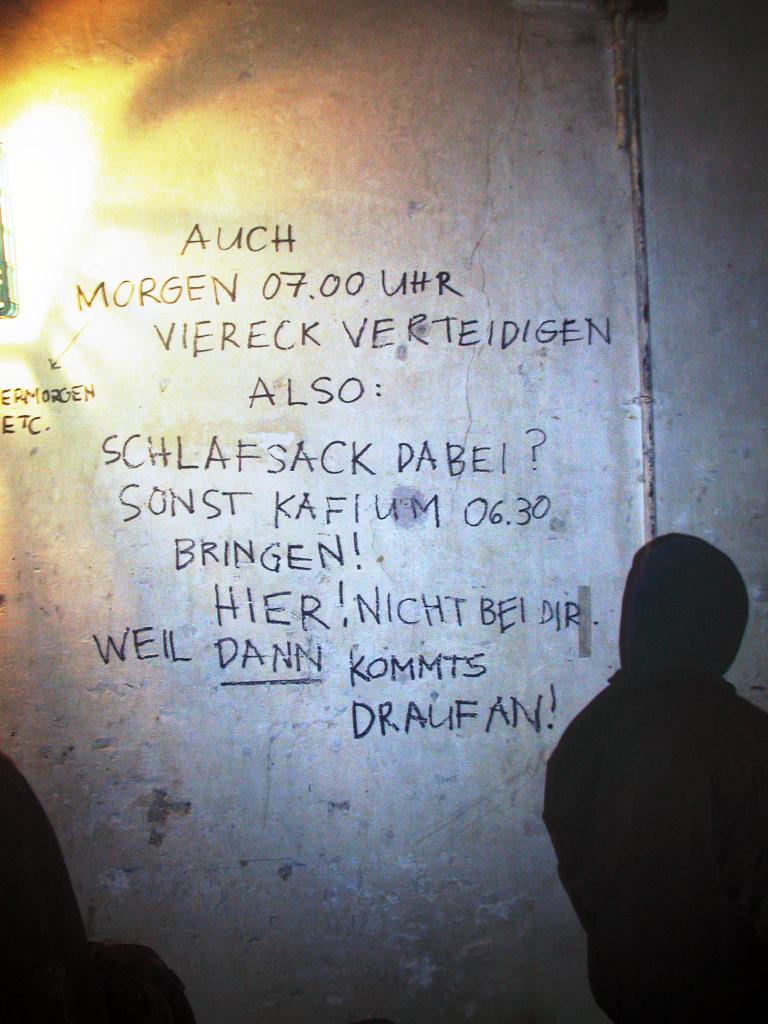 AUCH
MORGEN 07.00 UHR
VIERECK VERTEIDIGEN
ERMORGEN
ETC.
ALSO:
SCHLAFSACK DABEI?
SONST KAFI UM 06.30
BRINGEN!
HIER! NICHT BEI DIR.
WEIL DANN KOMMTS
DRAUF AN!